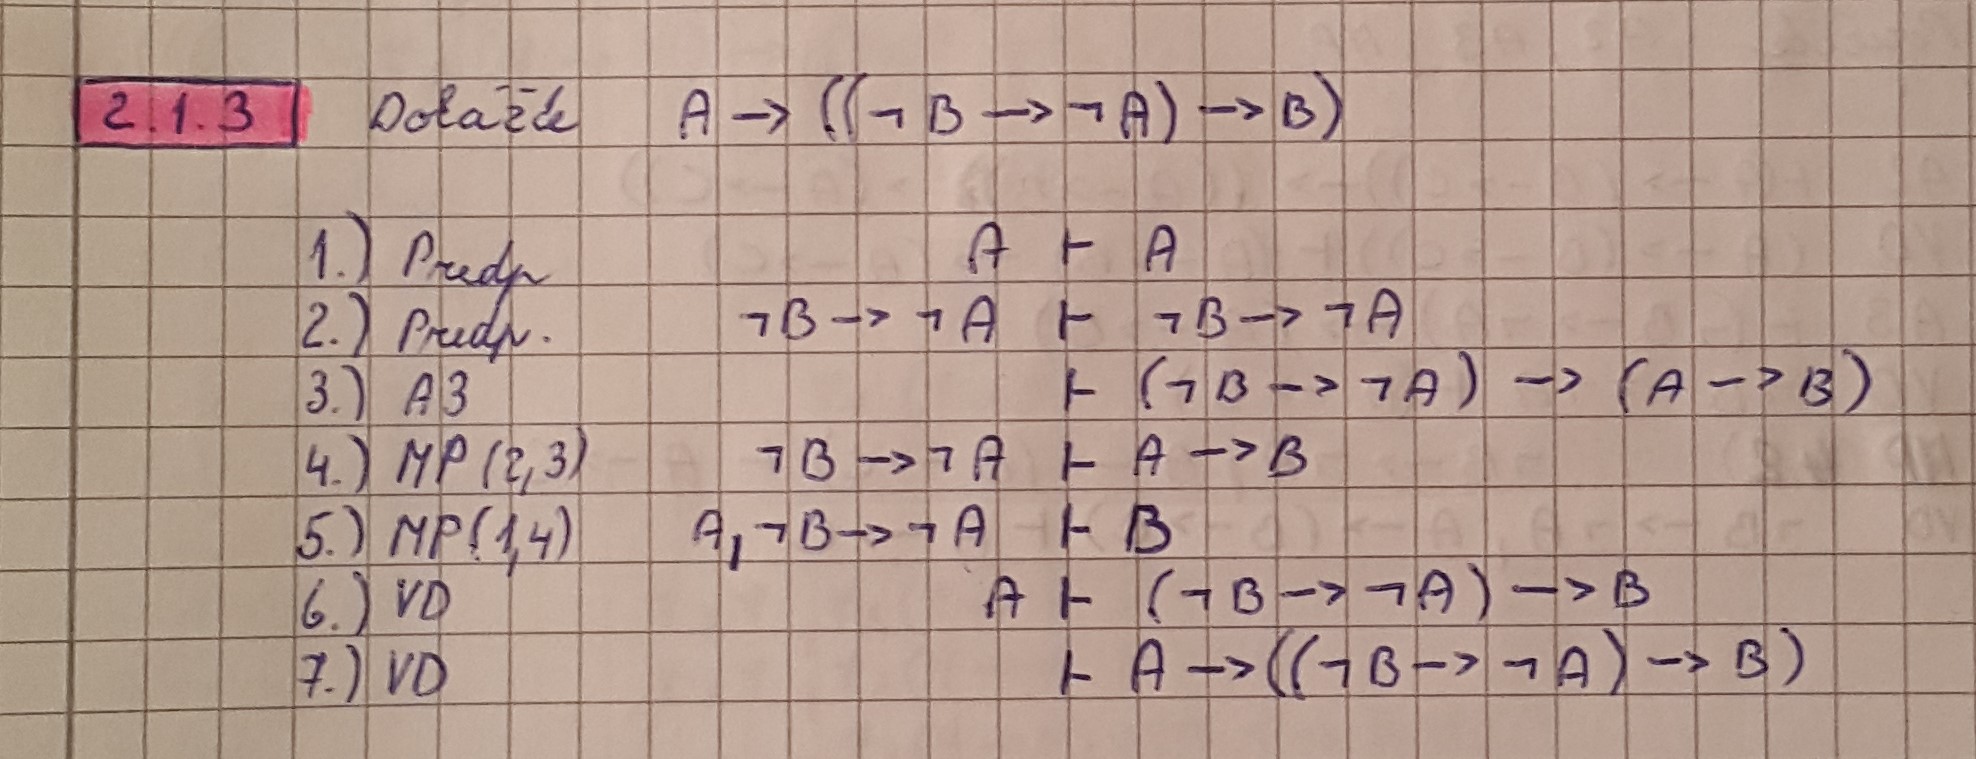 2.1.3 Dokážte A -> ((¬B -> ¬A) -> B)
1.) Predp A ⊢ A
2.) Predp. ¬B -> ¬A ⊢ ¬B -> ¬A
3.) A3 ⊢ (¬B -> ¬A) -> (A -> B)
4.) MP (2,3) ¬B -> ¬A ⊢ A -> B
5.) MP (1,4) A, ¬B -> ¬A ⊢ B
6.) VD A ⊢ (¬B -> ¬A) -> B
7.) VD ⊢ A -> ((¬B -> ¬A) -> B)